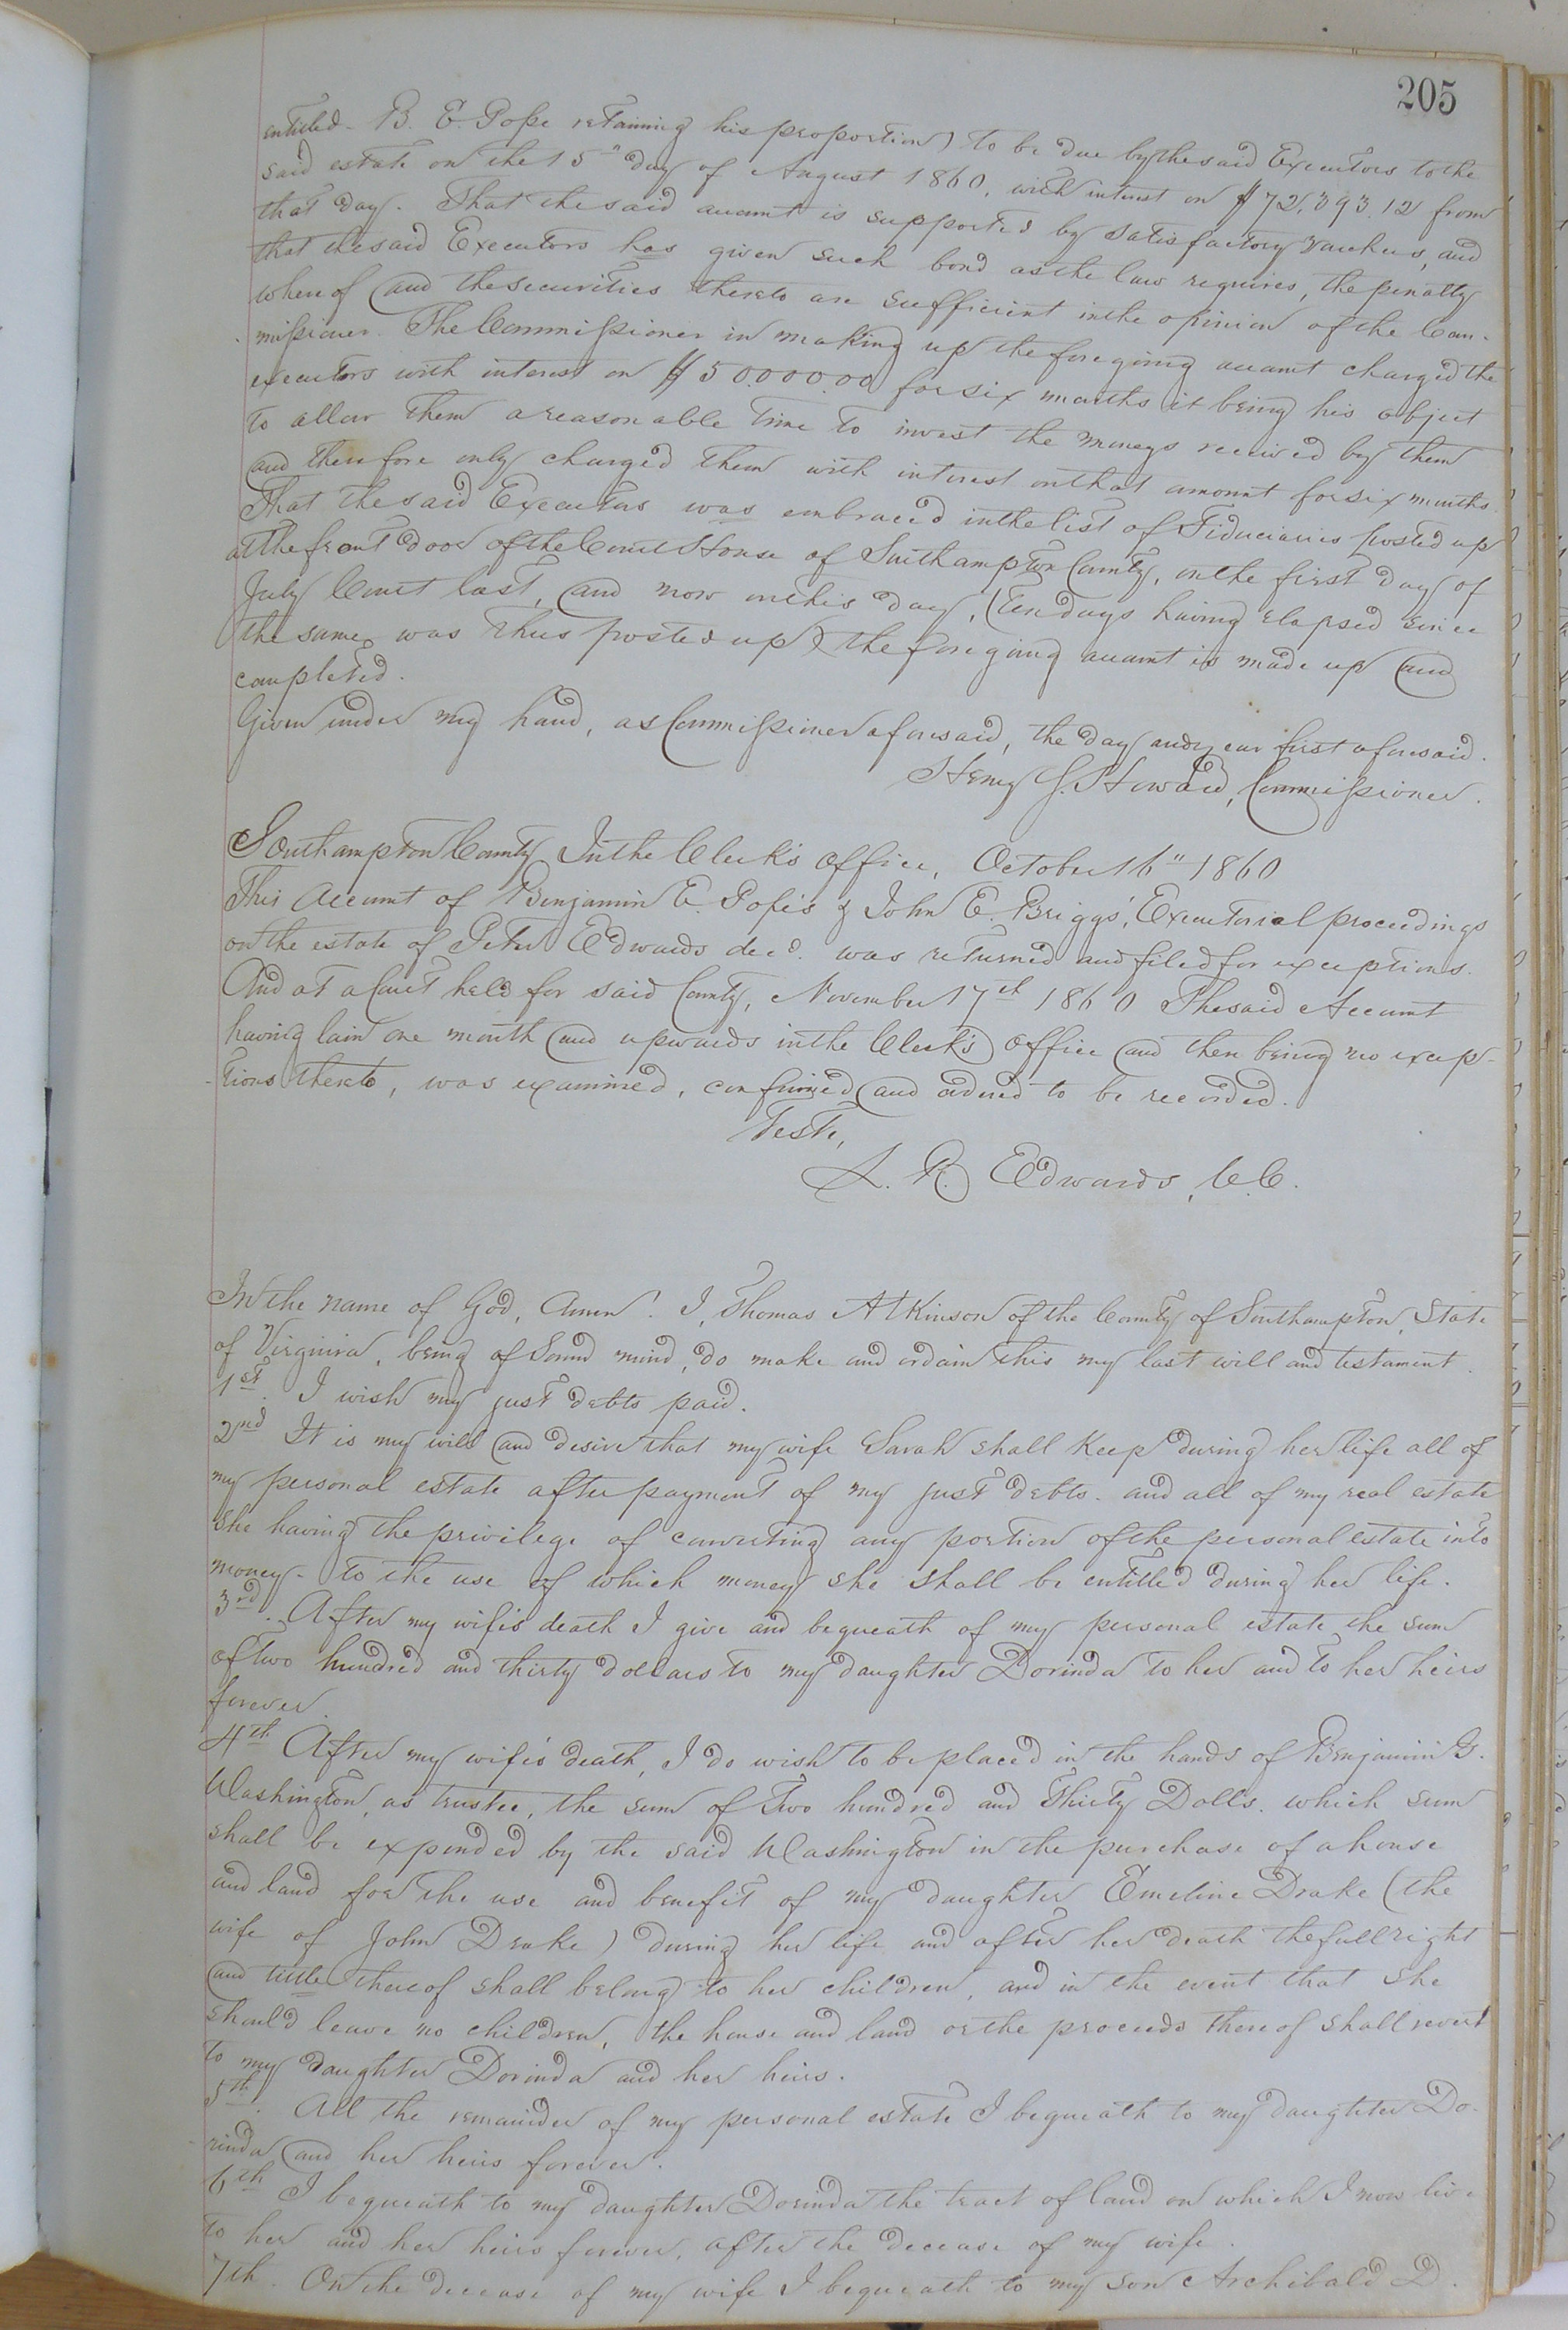 205
entitled - B. E. Pope retaining his proportion) to be due by the said Executors to the
said estate on the 15" day of August 1860, with interest on $72,393.12 from
that day. That the said account is supported by satisfactory vouchers, and
that the said Executors has given such bond as the law requires, the penalty
whereof (and the securities thereto are sufficient in the opinion of the Com-
missioner. The Commissioner in making up the foregoing account charged the
executors with interest on $50.000.00 for six months it being his object
to allow them a reasonable time to invest the moneys received by them
and therefore only charged them with interest on that amount for six months.
That the said Executors was embraced in the list of Fiduciaries posted up
at the front door of the Court House of Southampton County, on the first day of
July Court last, and now on this day, (ten days having elapsed since
the same was thus posted up) the foregoing account is made up and
completed.
Given under my hand, as Commissioner aforesaid, the day and year first aforesaid.
Henry J. Howard, Commissioner.
Southampton County In the Clerk's office, October 16" 1860
This Account of Benjamin E. Pope's & John E. Briggs', Executorial proceedings
on the estate of Peter Edwards decd. was returned and filed for exceptions.
And at a Court held for said County, November 17th 1860 The said Account
having lain one month and upwards in the Clerk's office and then being no excep-
tions thereto, was examined, confirmed and ordered to be recorded.
Teste,
L. R. Edwards, C.C.
In the name of God, Amen! I, Thomas Atkinson of the County of Southampton, State
of Virginia, being of Sound mind, do make and ordain this my last will and testament.
1st. I wish my just debts paid.
2nd It is my will and desire that my wife Sarah shall Keep during her life all of
my personal estate after payment of my just debts. and all of my real estate
she having the privilege of converting any portion of the personal estate into
money - to the use of which money she shall be entitled during her life.
3rd. After my wife's death I give and bequeath of my personal estate the sum
of Two hundred and thirty dollars to my daughter Dorinda to her and to her heirs
forever.
4th After my wife's death, I do wish to be placed in the hands of Benjamin G.
Washington, as trustee, the sum of Two hundred and Thirty Dolls. which sum
shall be expended by the said Washington in the purchase of a house
and land for the use and benefit of my daughter Emeline Drake (the
wife of John Drake) during her life and after her death the full right
and tittle thereof shall belong to her children, and in the event that she
should leave no children, the house and land or the proceeds thereof shall revert
to my daughter Dorinda and her heirs.
5th. All the remainder of my personal estate I bequeath to my daughter Do-
rinda and her heirs forever.
6th I bequeath to my daughter Dorinda the tract of land on which I now live
to her and her heirs forever, after the decease of my wife.
7th. On the decease of my wife I bequeath to my son Archibald D.